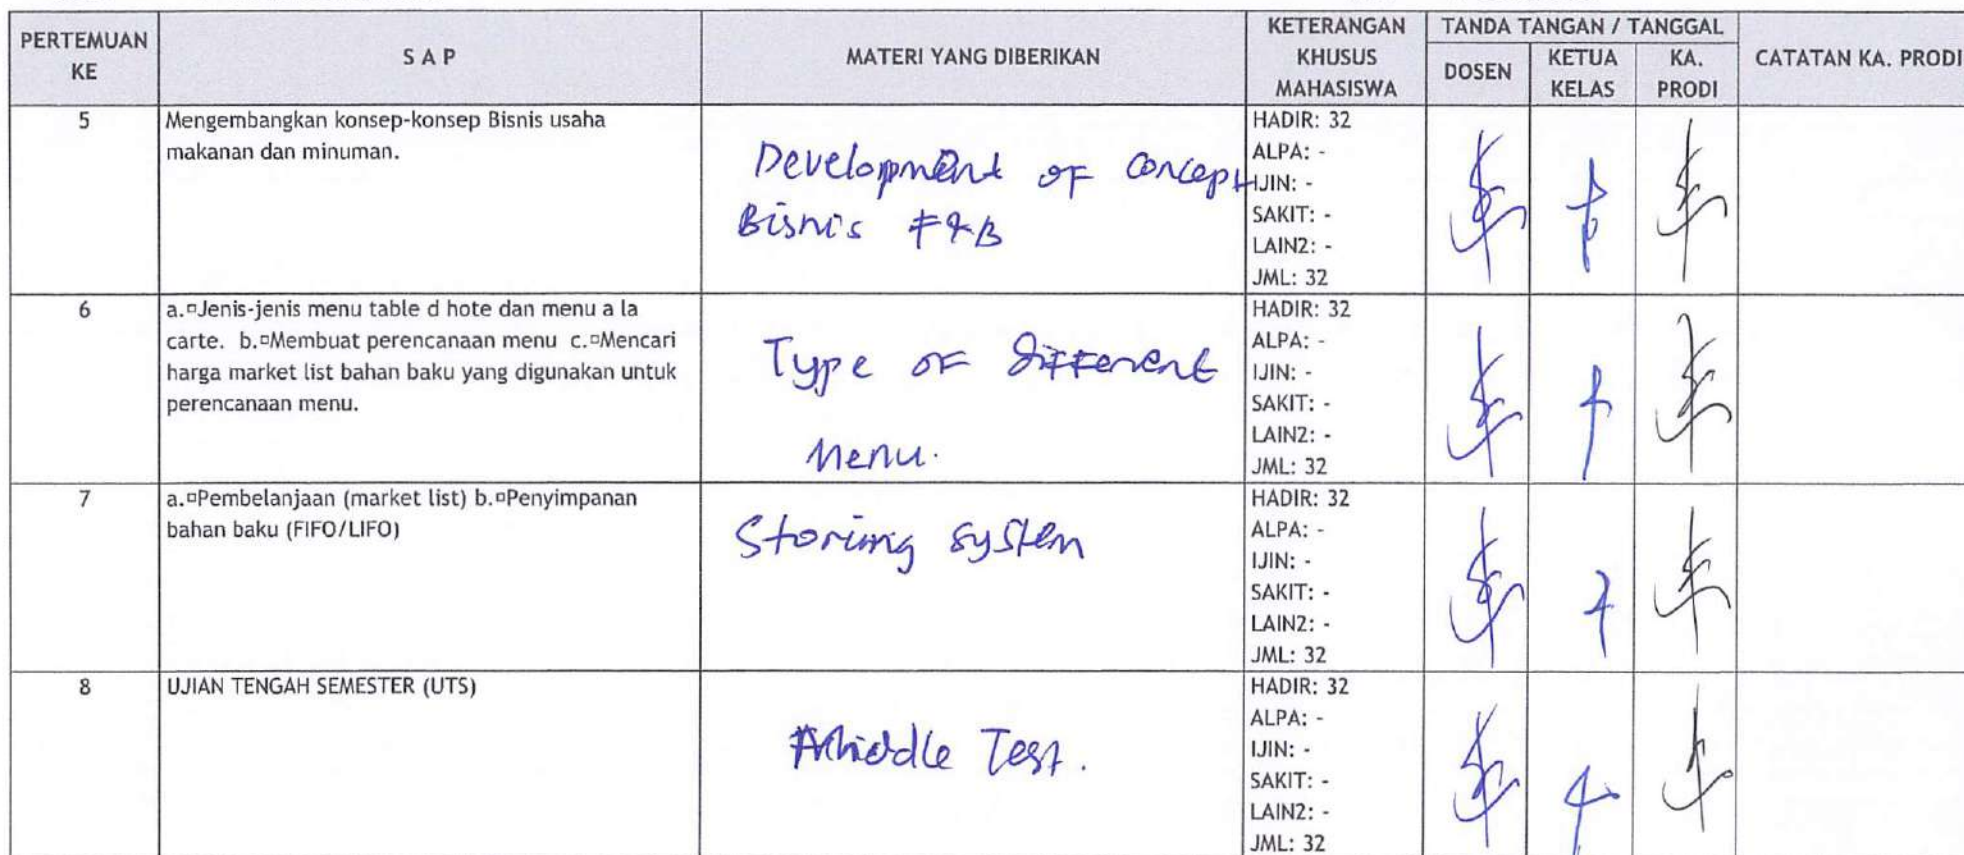 PERTEMUAN KE
S A P
MATERI YANG DIBERIKAN
KETERANGAN KHUSUS MAHASISWA
TANDA TANGAN / TANGGAL
DOSEN
KETUA KELAS
KA. PRODI
CATATAN KA. PRODI
5
Mengembangkan konsep-konsep Bisnis usaha
makanan dan minuman.
Development of Concept
Bisnis F&B
HADIR: 32
ALPA: -
IJIN: -
SAKIT: -
LAIN2: -
JML: 32
6
a.¤Jenis-jenis menu table d hote dan menu a la
carte. b.¤Membuat perencanaan menu c.¤Mencari
harga market list bahan baku yang digunakan untuk
perencanaan menu.
Type of Different
Menu.
HADIR: 32
ALPA: -
IJIN: -
SAKIT: -
LAIN2: -
JML: 32
7
a.¤Pembelanjaan (market list) b.¤Penyimpanan
bahan baku (FIFO/LIFO)
Storing system
HADIR: 32
ALPA: -
IJIN: -
SAKIT: -
LAIN2: -
JML: 32
8
UJIAN TENGAH SEMESTER (UTS)
Middle Test.
HADIR: 32
ALPA: -
IJIN: -
SAKIT: -
LAIN2: -
JML: 32